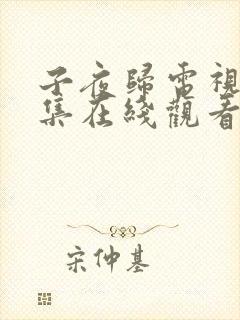 子夜歸電視
集在綫觀看
宋仲基